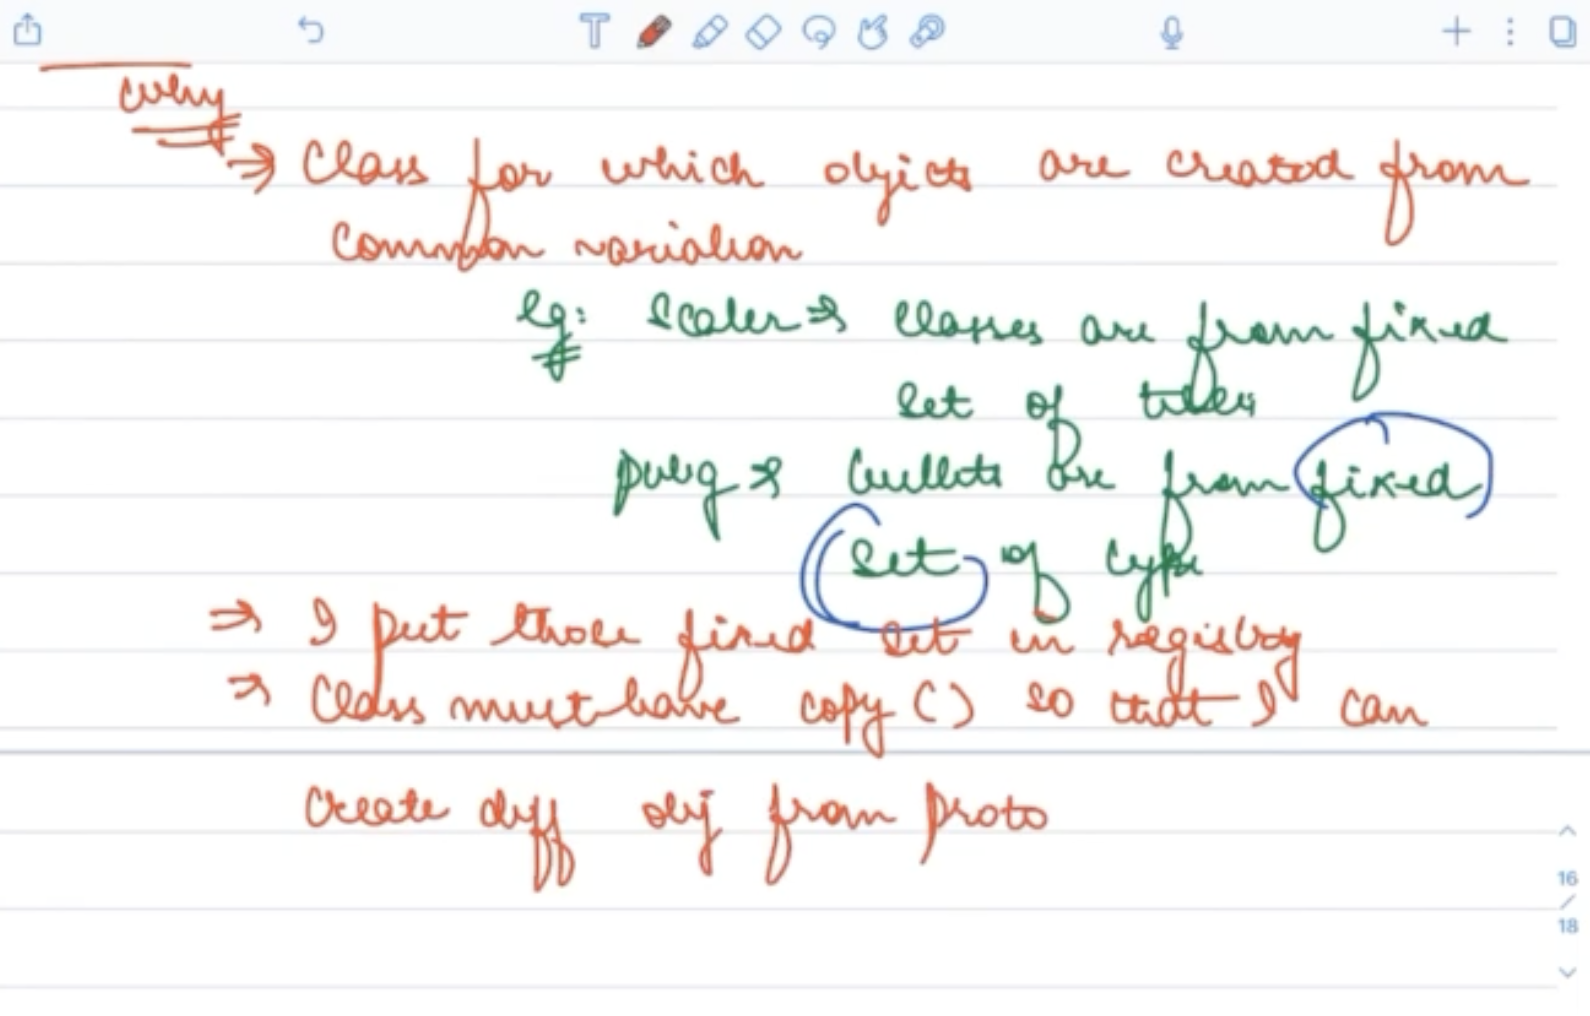 why
⇒ Class for which objects are created from
common variation
eg: Scaler ⇒ classes are from fixed
set of titles
pubg ⇒ bullets are from fixed
set of type
⇒ I put those fixed set in registry
⇒ Class must have copy () so that I can
create diff obj from proto
16
/
18